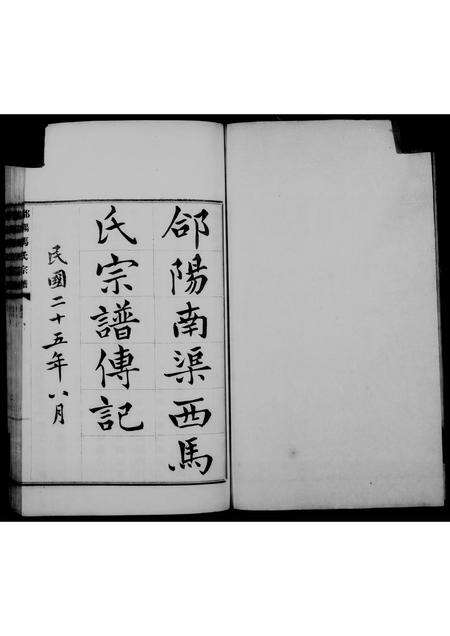 郃陽南渠西馬
氏宗譜傳記
民國二十五年八月